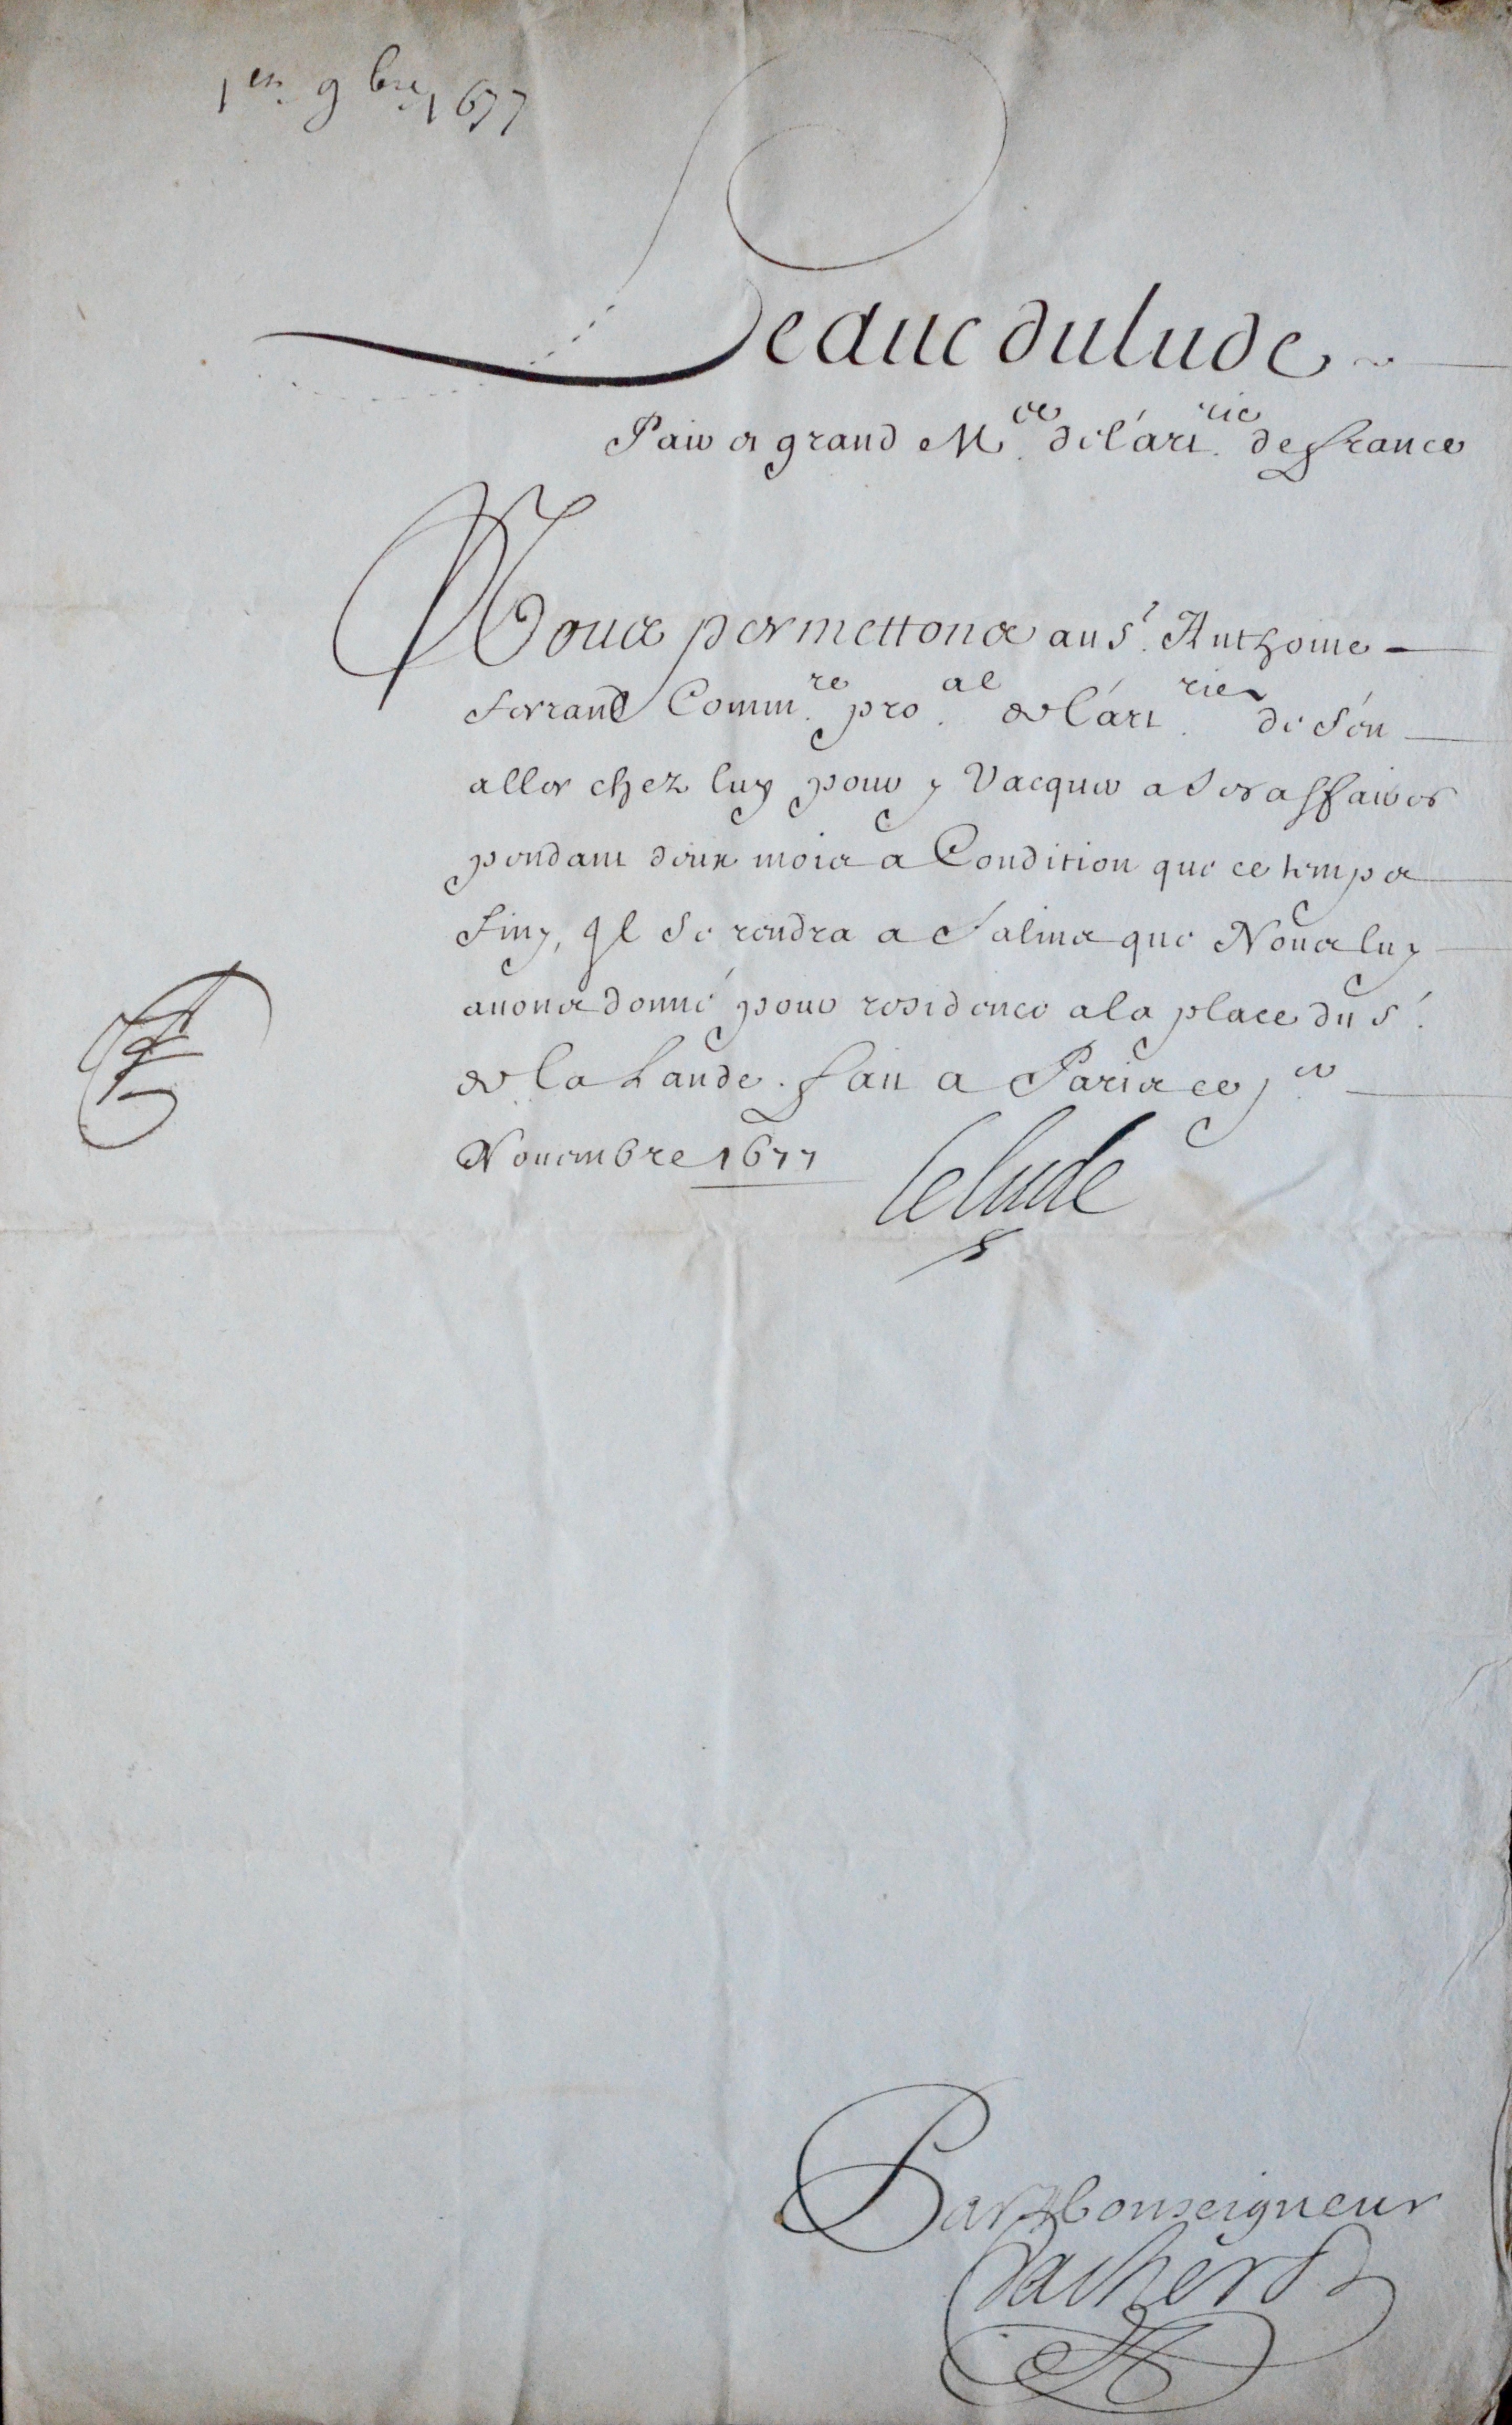 1er 9bre 1677
Le duc du lude
Pair et grand Me de l'artrie de france
Nous permettons au Sr. Anthoine
ferrand Commre proal de l'artrie de s'en
aller chez luy pour y Vacquer a ses affaires
pendant deux mois a Condition que ce temps
finy, Il se rendra a Salins que Nous luy
auons donné pour residence a la place du Sr.
de la Lande. fait a Paris ce jer
Nouembre 1677
le lude
Par Monseigneur